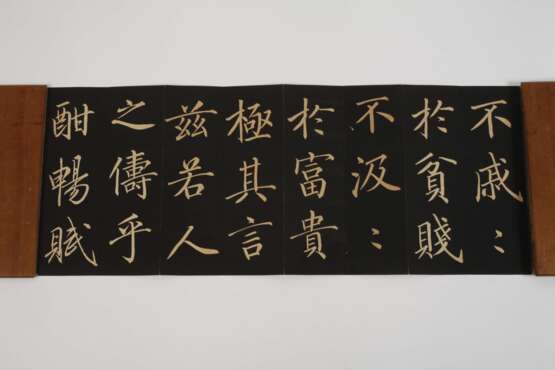 不戚〻
於貧賤
不汲〻
於富貴
極其言
兹若人
之儔乎
酣暢賦